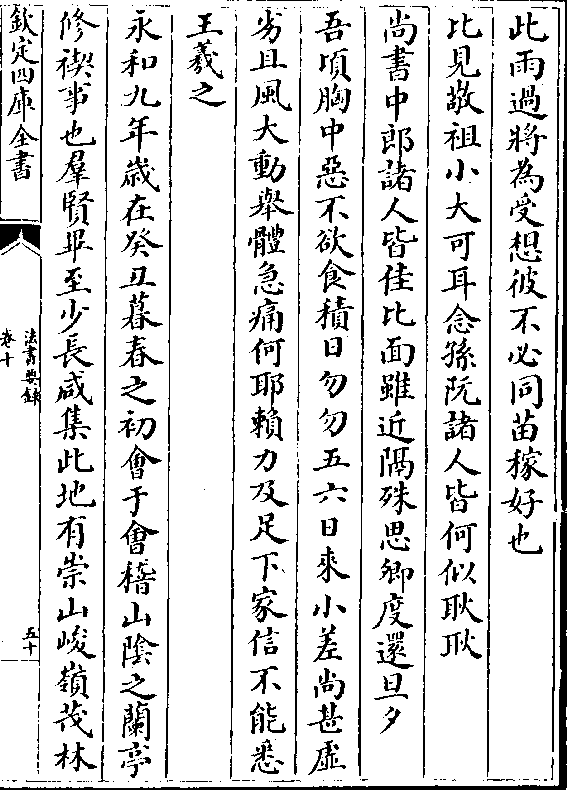 此雨過將為受想彼不必同苗稼好也
比見敬祖小大可耳念孫阮諸人皆何似耿耿
尚書中郎諸人皆佳比面雖近隔殊思卿度還旦夕
吾頃胸中惡不欲食積日勿勿五六日來小差尚甚虛
劣且風大動舉體急痛何耶賴力及足下家信不能悉
王羲之
永和九年歲在癸丑暮春之初會于會稽山陰之蘭亭
修禊事也羣賢畢至少長咸集此地有崇山峻嶺茂林
欽定四庫全書
法書要錄
卷十
五十